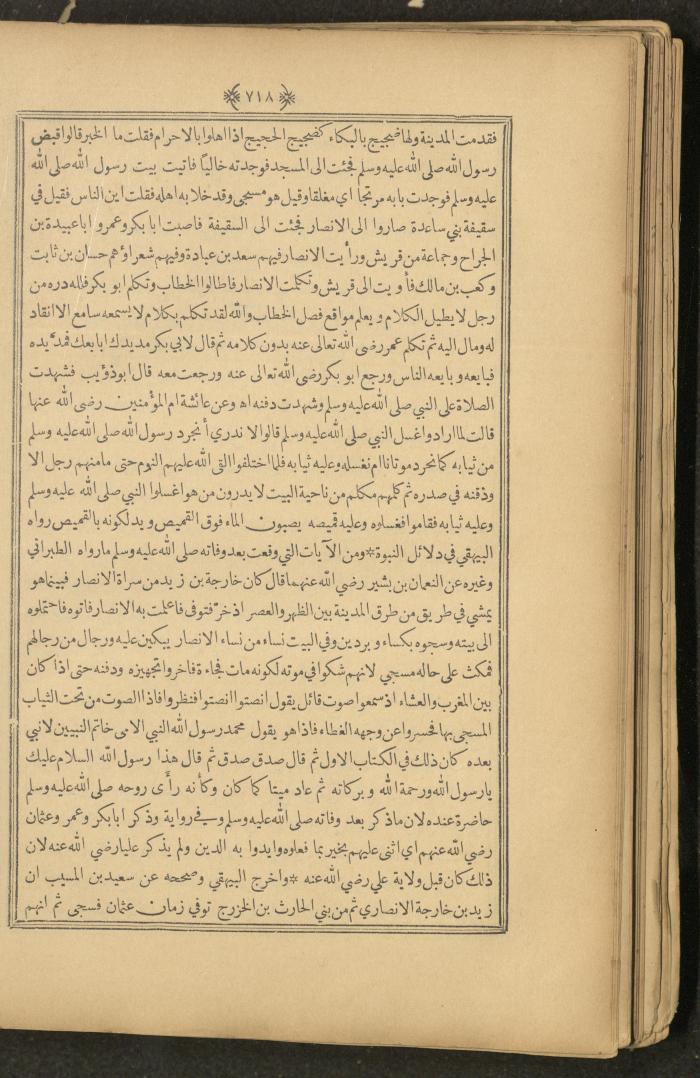 ﴿٧١٨﴾
فقدمت المدينة ولها ضجيج بالبكاء كضجيج الحجيج اذا اهلوا بالاحرام فقلت ما الخبر قالوا قبض
رسول الله صلى الله عليه وسلم فجئت الى المسجد فوجدته خالياً فاتيت بيت رسول الله صلى الله
عليه وسلم فوجدت بابه مرتجا اي مغلقا وقيل هو مسجى وقد خلا به اهله فقلت اين الناس فقيل في
سقيفة بني ساعدة صاروا الى الانصار فجئت الى السقيفة فاصبت ابا بكر وعمر وابا عبيدة بن
الجراح وجماعة من قريش ورأيت الانصار فيهم سعد بن عبادة وفيهم شعراؤهم حسان بن ثابت
وكعب بن مالك فأويت الى قريش وتكلمت الانصار فاطالوا الخطاب وتكلم ابو بكر فلله دره من
رجل لا يطيل الكلام ويعلم مواقع فصل الخطاب والله لقد تكلم بكلام لا يسمعه سامع الا انقاد
له ومال اليه ثم تكلم عمر رضى الله تعالى عنه بدون كلامه ثم قال لابي بكر مد يدك ابايعك فمد يده
فبايعه وبايعه الناس ورجع ابو بكر رضى الله تعالى عنه ورجعت معه قال ابو ذؤيب فشهدت
الصلاة على النبي صلى الله عليه وسلم وشهدت دفنه اه وعن عائشة ام المؤمنين رضى الله عنها
قالت لما ارادوا غسل النبي صلى الله عليه وسلم قالوا لا ندري أنجرد رسول الله صلى الله عليه وسلم
من ثيابه كما نجرد موتانا ام نغسله وعليه ثيابه فلما اختلفوا القى الله عليهم النوم حتى ما منهم رجل الا
وذقنه في صدره ثم كلمهم مكلم من ناحية البيت لا يدرون من هو اغسلوا النبي صلى الله عليه وسلم
وعليه ثيابه فقاموا فغسلوه وعليه قميصه يصبون الماء فوق القميص ويدلكونه بالقميص رواه
البيهقي في دلائل النبوة * ومن الآيات التي وقعت بعد وفاته صلى الله عليه وسلم ما رواه الطبراني
وغيره عن النعمان بن بشير رضى الله عنهما قال كان خارجة بن زيد من سراة الانصار فبينما هو
يمشي في طريق من طرق المدينة بين الظهر والعصر اذ خر فتوفى فاعلمت به الانصار فاتوه فاحتملوه
الى بيته وسجوه بكساء وبردين وفي البيت نساء من نساء الانصار يبكين عليه ورجال من رجالهم
فمكث على حاله مسجي لانهم شكوا في موته لكونه مات فجاءة فاخروا تجهيزه ودفنه حتى اذا كان
بين المغرب والعشاء اذ سمعوا صوت قائل يقول انصتوا انصتوا فنظروا فاذا الصوت من تحت الثياب
المسجى بها فحسروا عن وجهه الغطاء فاذا هو يقول محمد رسول الله النبي الامى خاتم النبيين لا نبي
بعده كان ذلك في الكتاب الاول ثم قال صدق صدق ثم قال هذا رسول الله السلام عليك
يا رسول الله ورحمة الله وبركاته ثم عاد ميتا كما كان وكأنه رأى روحه صلى الله عليه وسلم
حاضرة عنده لان ما ذكر بعد وفاته صلى الله عليه وسلم وفي رواية وذكر ابا بكر وعمر وعثمان
رضي الله عنهم اي اثنى عليهم بخير بما فعلوه وايدوا به الدين ولم يذكر عليا رضي الله عنه لان
ذلك كان قبل ولاية علي رضي الله عنه * واخرج البيهقي وصححه عن سعيد بن المسيب ان
زيد بن خارجة الانصاري ثم من بني الحارث بن الخزرج توفي زمان عثمان فسجى ثم انهم